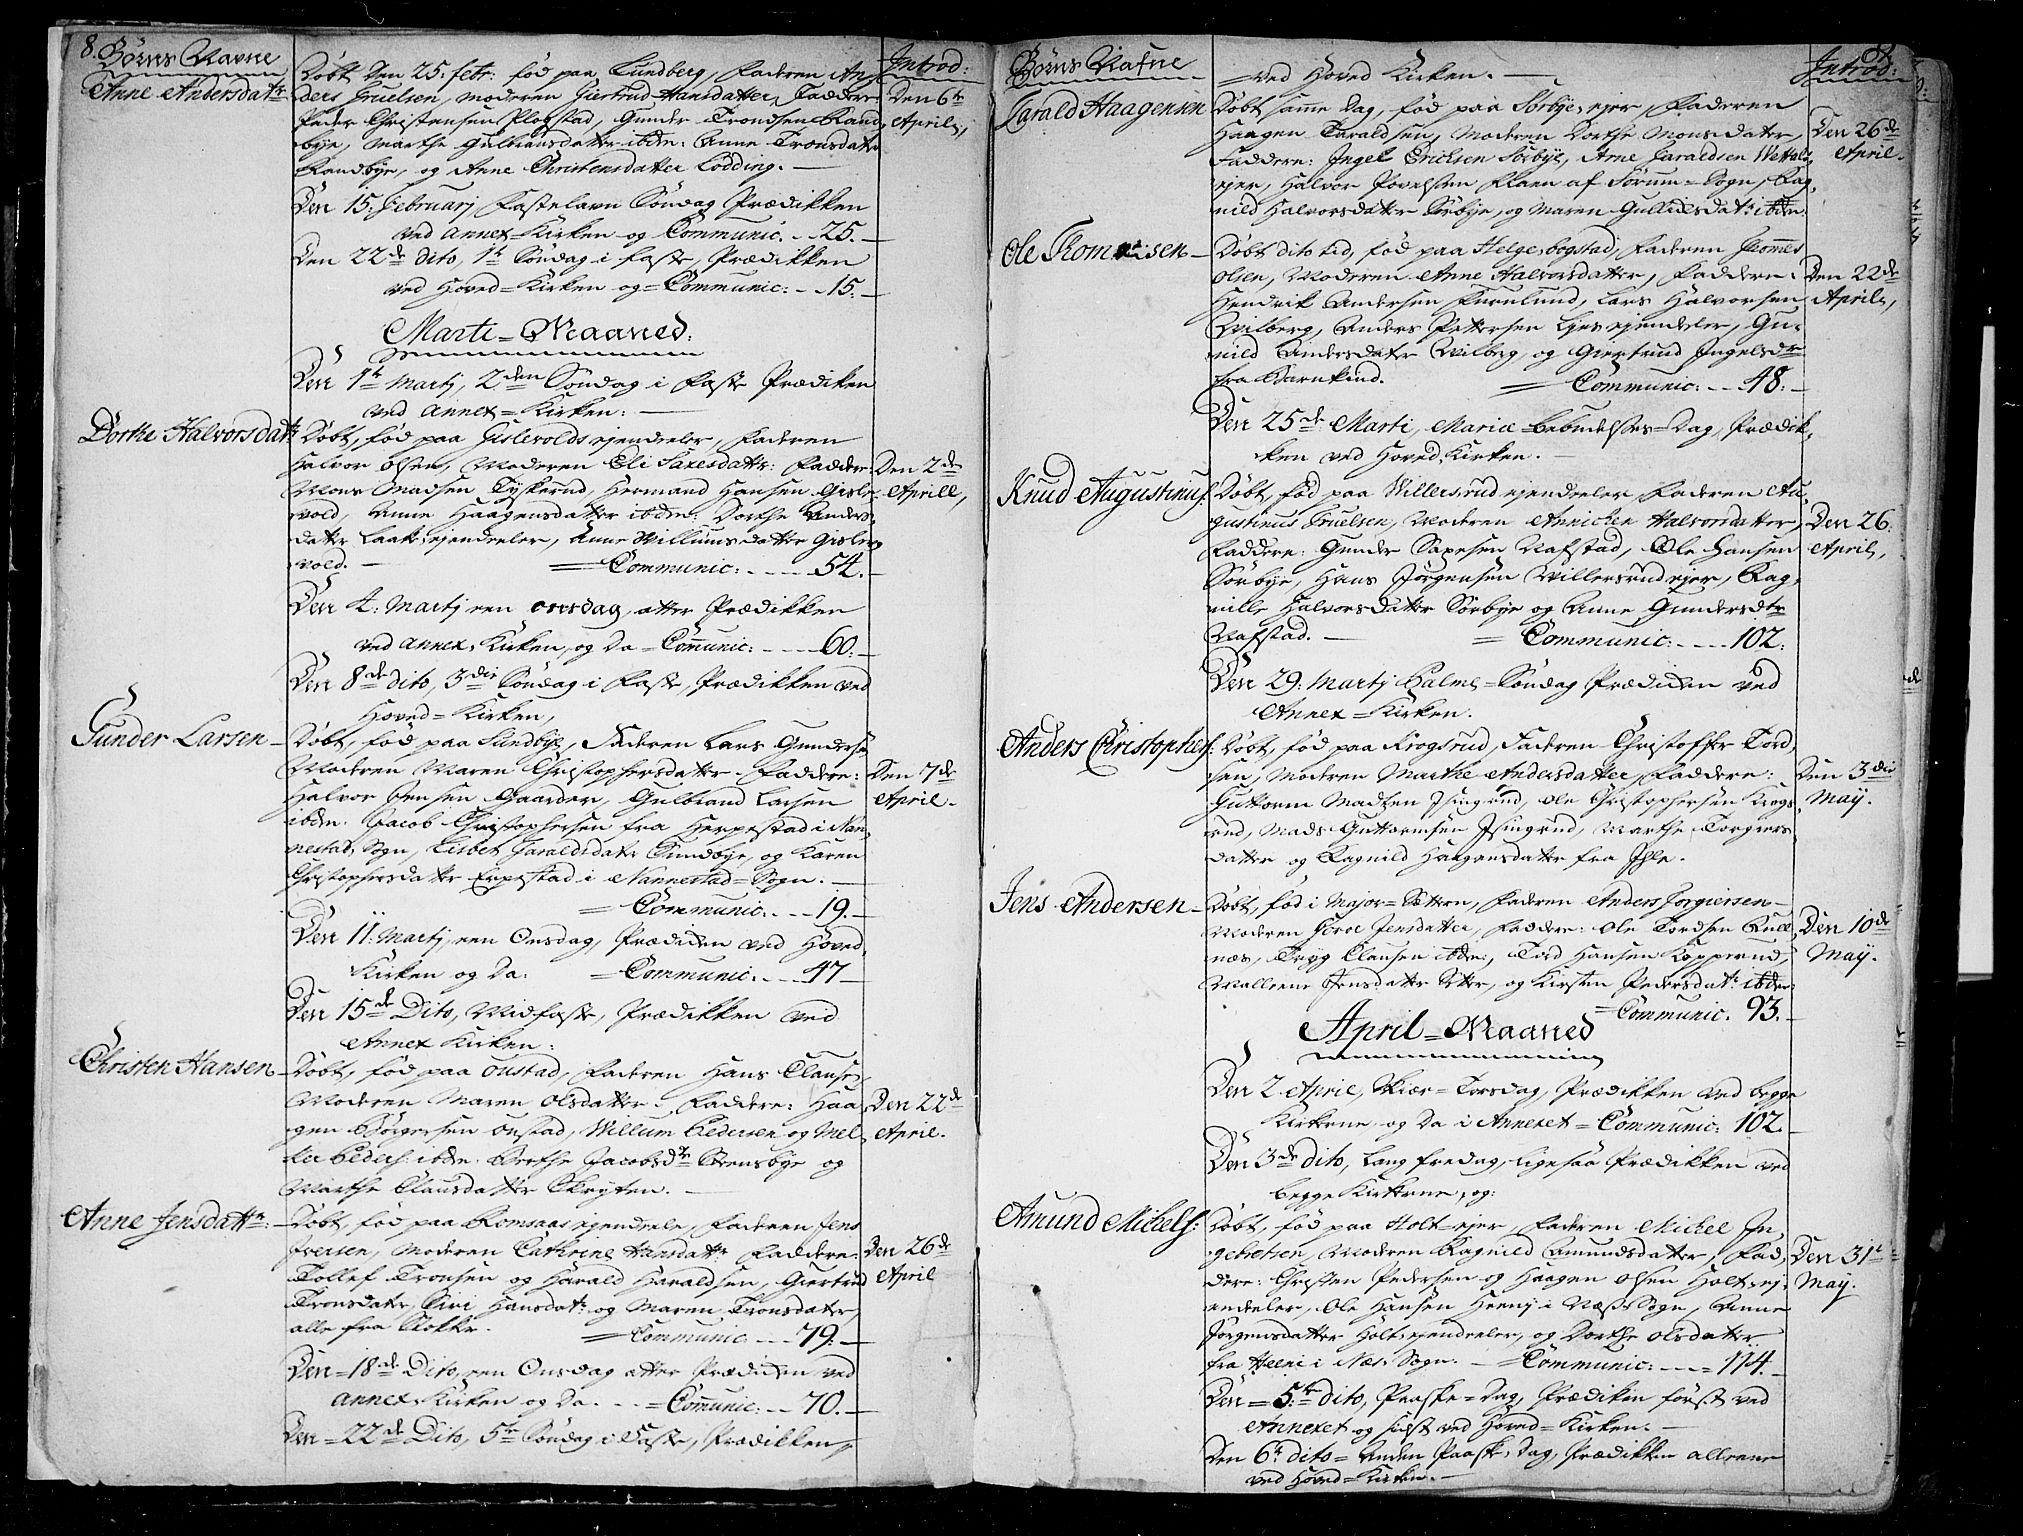 8. Börns Navne
Introd:
Anne Andersdatr
Döbt Den 25: febr: fød paa Lundberg, Faderen An-
ders Truelsen, moderen Giertrud Hansdatter, Faddere
Peder Christensen Plogstad, Gunder Trondsen Rand-
bye, Marthe Gulbransdatter ibdm: Anne Tronsdatr
Randbye, og Anne Christensdatter Lödding. —
Den 6te
April,
Den 15: Februarj Fastelavn Söndag Prædikken
ved Annex-Kirken og Communic. - 25. —
Den 22de dito, 1te Söndag i faste, Prædikken
ved Hoved-Kirken og = Communic: - 15. —
Marti - Maaned.
Den 1te Martj, 2den Söndag i Faste Prædiken
ved Annex-Kirken: —
Dorthe Halvorsdatr
Döbt, fød paa Gislevolds ejendeeler, Faderen
Halvor Olsen, Moderen Eli Saxesdattr: Faddere:
Mons Madsen Tyskerud, Hermand Hansen Gisle-
vold, Anne Haagensdatter ibdm: Dorthe Anders-
datter Laake ejendeeler, Anne Willumsdatter Gisle-
vold. — = Communic: - - - 54. —
Den 2de
Aprill,
Den 4: Martj een onsdag atter Prædikken
ved Annex-Kirken, og Da = Communic: - - - 60: —
Den 8de dito, 3die Söndag i Faste, Prædikken ved
Hoved-Kirken,
Gunder Larsen —
Döbt, fød paa Sundbye, Faderen Lars Gunders:
Moderen Maren Christophersdatter. Faddere:
Halvor Jensen Gaarder, Gulbrand Larsen
ibdm. Jacob Christophersen fra Herpestad i Nan-
nestad Sogn, Lisbet Haraldsdatr Sundbye, og Karen
Christophersdatter Erpestad i Nannestad-Sogn. —
= Communic. - - 19. —
Den 7de
April.
Den 11: Martj, een Onsdag, Prædiken ved Hoved-
Kirken og Da. = Communic. - - 47 —
Den 15de Dito, Midfaste, Prædikken ved
Annex Kirken:
Christen Hansen —
Döbt, fød paa Onstad, Faderen Hans Clausen,
Moderen Maren Olsdatter. Faddere: Haa-
gen Börgersen Onstad, Willum Pedersen og Mel-
ker Peders: ibdm. Berthe Jacobsdtr Steensbye og
Marthe Clausdatter Skryten. —
Den 22de
April.
Anne Jensdattr: —
Döbt, fød paa Romsaas ejendeele, Faderen Jens
Iversen, Moderen Cathrine Hansdattr Faddere:
Tollef Tronsen og Harald Haraldsen, Giertrud
Tronsdatr, Siri Hansdatr: og Maren Tronsdatr,
alle fra Slokkr. = Communic - - 79. —
Den 26de
April
Den - 18de Dito, een Onsdag atter Prædiken ved
Annex Kirken og Da. - - = Communic: - - 70. —
Den - 22de Dito, 5te Söndag i Faste, Prædikken
Börns Nafne
Introd:
= ved Hoved Kirken. —
Tarald Haagensen
Döbt samme Dag, fød paa Sörbye ejer, Faderen
Haagen Taraldsen, Moderen Dorthe Monsdatter,
Faddere: Ingel Ericksen Sörbye, Arne Taraldsen Wettals
ejer, Halvor Povelsen Raen af Sørum-Sogn, Rag-
nild Halvorsdatter Sörbye, og Maren Gullicksdatr: ibdm:
Den 26de
April.
Ole Thommisen —
Döbt dito tid, fød paa Helgebogstad, Faderen Thomes
Olsen, Moderen Anne Halvorsdatter, Faddere:
Hendrik Andersen Furulund, Lars Halvorsen
Wilberg, Anders Pettersen Lyes ejendeeler, Gu-
nild Andersdatr Wilberg, og Giertrud Ingelsdr
fra Karukind. = Communic: - - 48: —
Den 22de
April,
Den 25de Marti, Mariæ Bebudelses-Dag, Prædik-
ken ved Hoved-Kirken. —
Knud Augustinus:
Döbt, fød paa Willersrud ejendeeler Faderen Au-
gustinus Truelsen, Moderen Annichen Halvorsdatter,
Faddere: Gunder Saxesen Nafstad, Ole Hansen
Sörbye, Hans Jörgensen Willersrud ejer, Rag-
nille Halvorsdatter Sörbye og Anne Gundersdtr
Nafstad. — = Communic: - - - 102.
Den 26:
April,
Den 29: Martj Palme-Söndag Prædiken ved
Annex-Kirken.
Anders Christophers:
Döbt, fød paa Krogsrud, Faderen Christoffer Tord-
sen, Moderen Marthe Andersdatter, Faddere:
Guttorm Madtzen Isingrud, Ole Christophersen Krogs-
rud, Mads Guttormsen Isingrud, Marthe Torgiers-
datter og Ragnild Haagensdatter fra Ihle.
Den 3die
Maÿ.
Jens Andersen —
Döbt, fød i Major-Sætren, Faderen Anders Jorgiersen
Moderen Goroe Jensdatter, Faddere: Ole Tordsen Rull-
næs, Tryg Clausen ibdm:, Tord Hansen Kopperud,
Malleene Jensdatter Sætr, og Kirsten Pedersdatr: ibdm:
= Communic. 93. —
Den 10de
Maÿ.
April-Maaned
Den 2 April, Skiær-Torsdag, Prædikken ved begge
Kirkerne og Da i Annexet = Communic: 102
Den 3de dito, Lang fredag, ligesaa Prædikken ved
begge Kirkerne, og:
Amund Michels:
Döbt, fød paa Holt-ejer, Faderen Michel In-
gebretsen, Moderen Ragnild Amundsdatter, Fad-
dere: Christen Pedersen og Haagen Olsen Holt ej-
endeeler, Ole Hansen Heenj i Næss Sogn, Anne
Jörgensdatter Holt ejendeeler, og Dorthe Olsdatter
fra Heeni i Næs-Sogn. — = Communic: - - - 114. —
Den 31te
Maÿ.
Den = 5te dito, Paaske-Dag, Prædiken först ved
Annexet og sidst ved Hoved-Kirken. —
Den 6te dito = Anden Paaske-Dag, Prædikken alleene
ved Hoved-Kirken. —